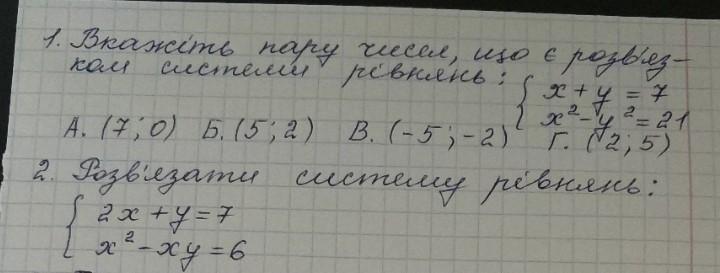 1. Вкажіть пару чисел, що є розв'яз-
ком системи рівнянь: { x + y = 7
x² - y² = 21
А. (7; 0) Б. (5; 2) В. (-5; -2) Г. (2; 5)
2. Розв'язати систему рівнянь:
{ 2x + y = 7
x² - xy = 6